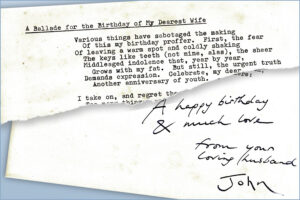 A Ballade for the Birthday of My Dearest Wife
Various things have sabotaged the making
Of this my birthday proffer. First, the fear
Of leaving a warm spot and coldly shaking
The keys like teeth (not mine, alas), the sheer
Middleaged indolence that, year by year,
Grows with my fat. But still, the urgent truth
Demands expression. Celebrate, my dear,
Another anniversary of youth.
I take on, and regret the
A happy birthday
& much love
from your
loving husband
John